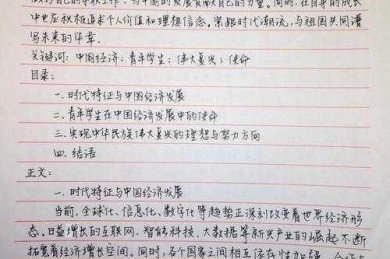 做好自己的本职工作，为中国的发展贡献自己的力量。同时，在自身的成长
中也应积极追求个人价值和理想信念。紧跟时代潮流，与祖国共同谱
写未来的华章。
关键词：中国经济；青年学生；伟大复兴；使命
目录：
一.时代特征与中国经济发展
二.青年学生在中国经济发展中的使命
三.实现中华民族伟大复兴的理想与努力方向
四.结语
正文：
一.时代特征与中国经济发展
当前，全球化、信息化、数字化等趋势正深刻改变着世界经济形
态。日益增长的互联网、智能科技、大数据等新兴产业的崛起，不断
拓宽着经济增长空间。同时，各个国家之间相互依存性加强